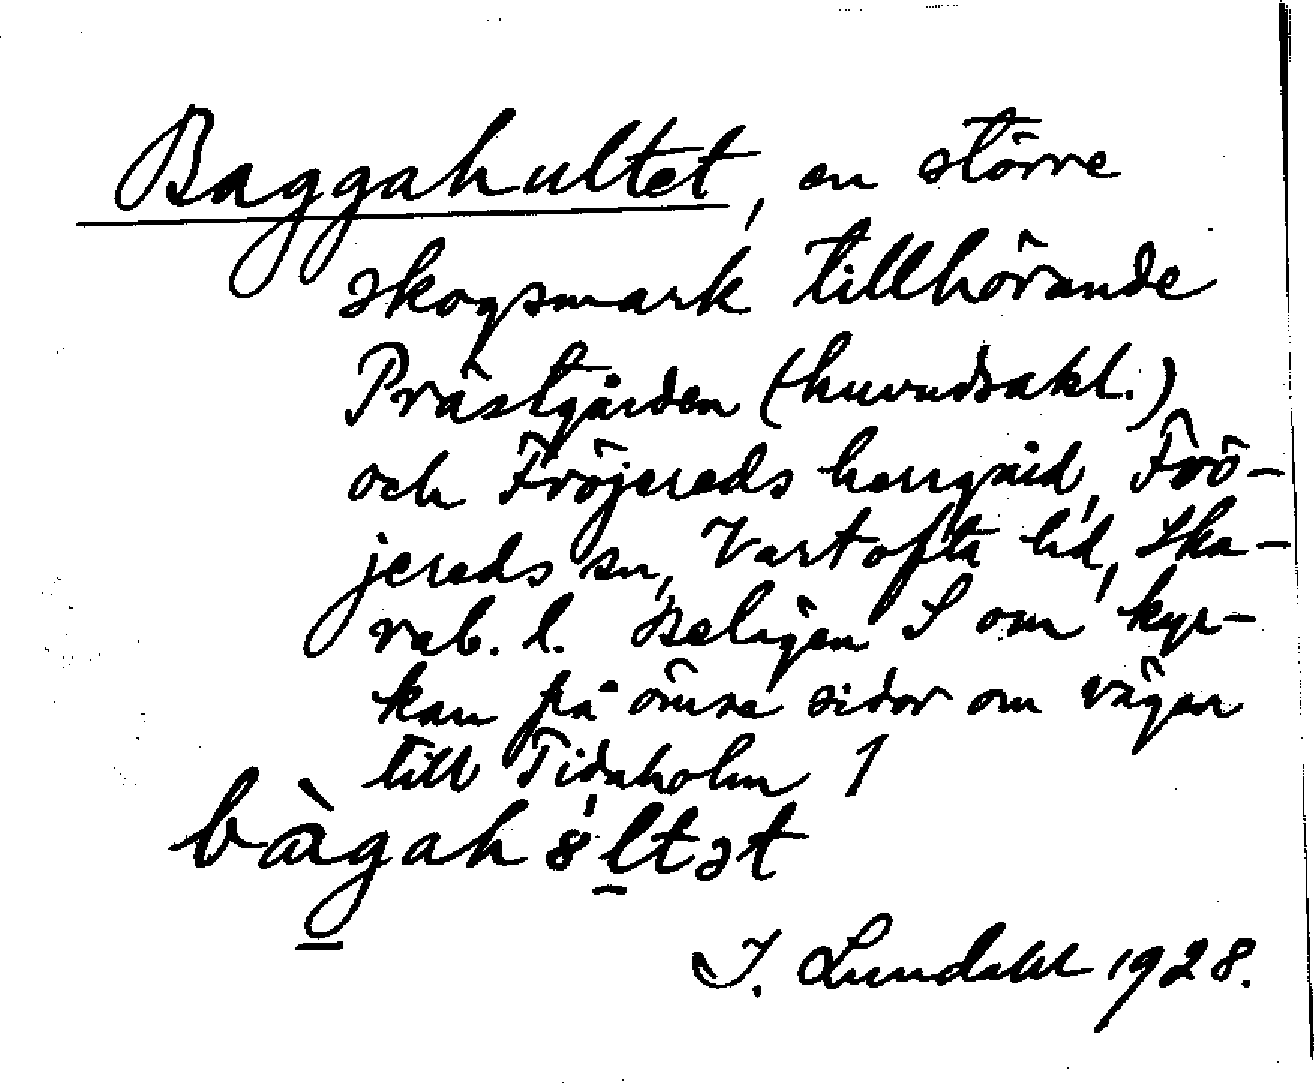 Baggahultet, en större
skogsmark tillhörande
Prästgården (huvudsakl.)
och Fröjereds herrgård, Frö-
jereds sn, Vartofta hd, Ska-
rab. l. Belägen S om kyr-
kan på ömse sidor om vägen
till Tidaholm
bàgahòltət
I. Lundahl 1928.